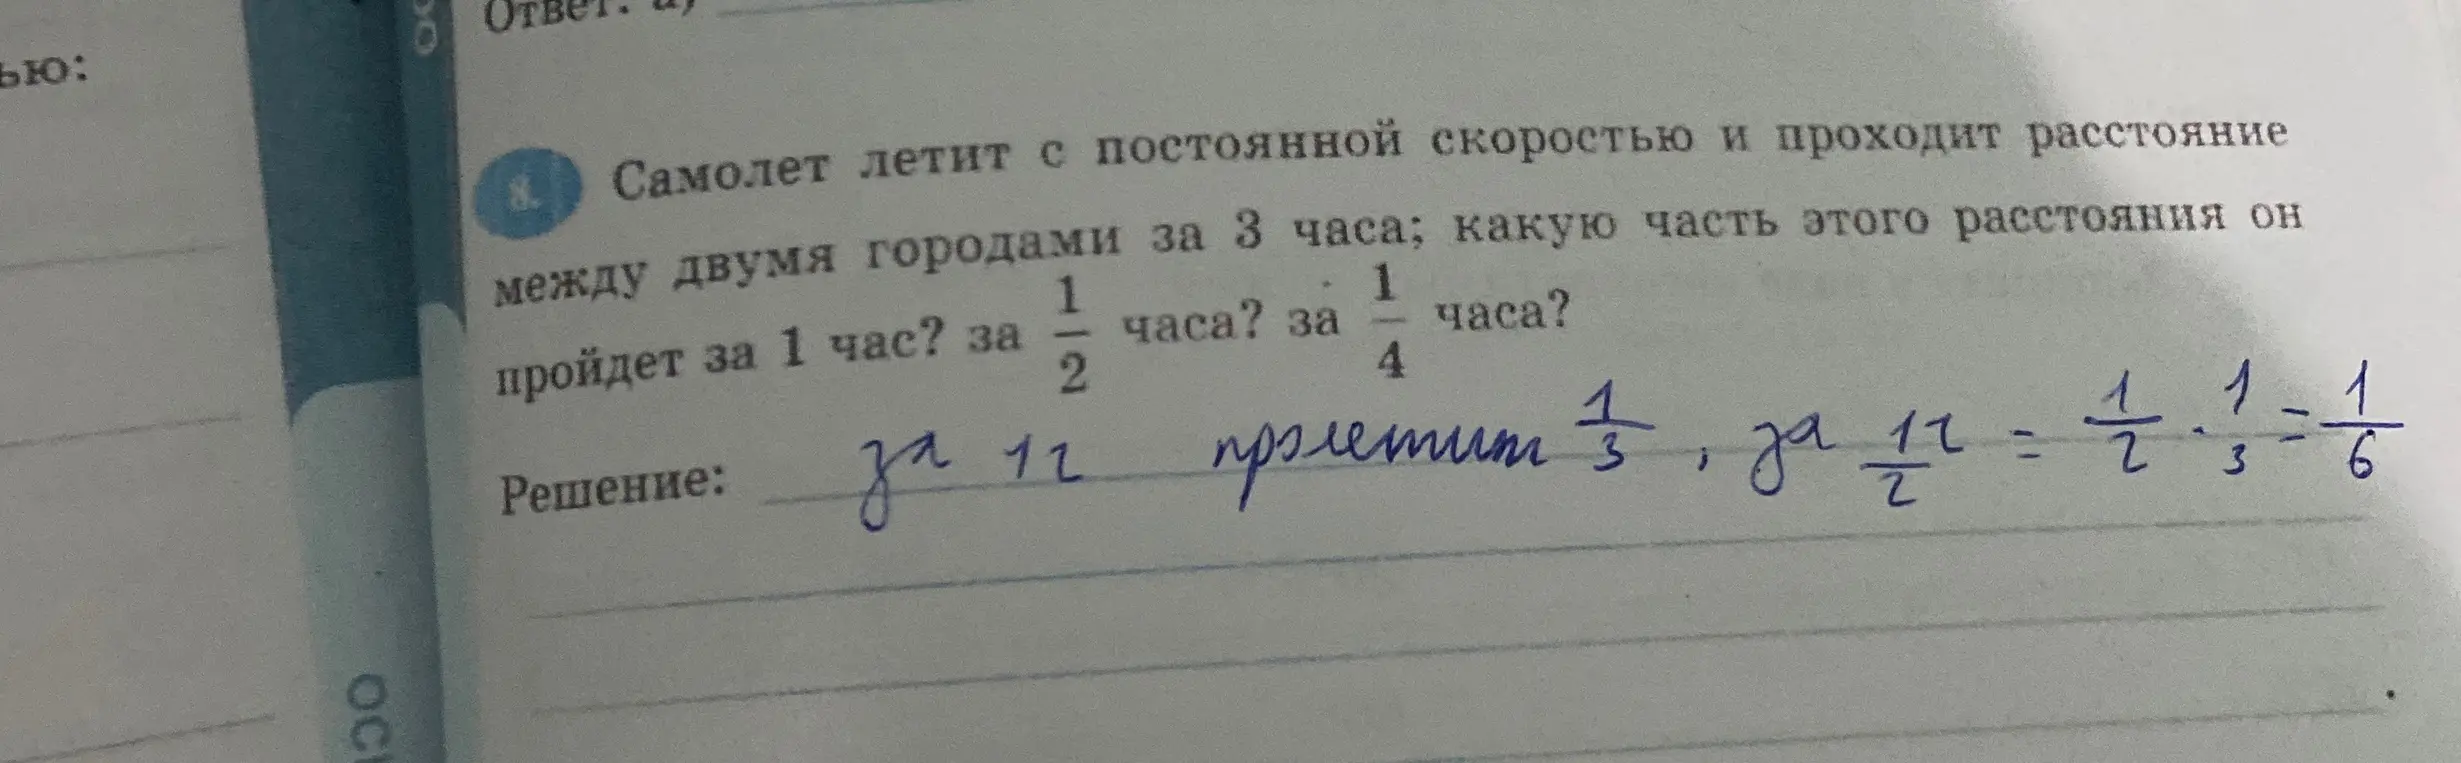 Ответ: а)
ью:
8. Самолет летит с постоянной скоростью и проходит расстояние
между двумя городами за 3 часа; какую часть этого расстояния он
пройдет за 1 час? за 1/2 часа? за 1/4 часа?
Решение: за 1г пролетит 1/3, за 1/2г = 1/2 · 1/3 = 1/6